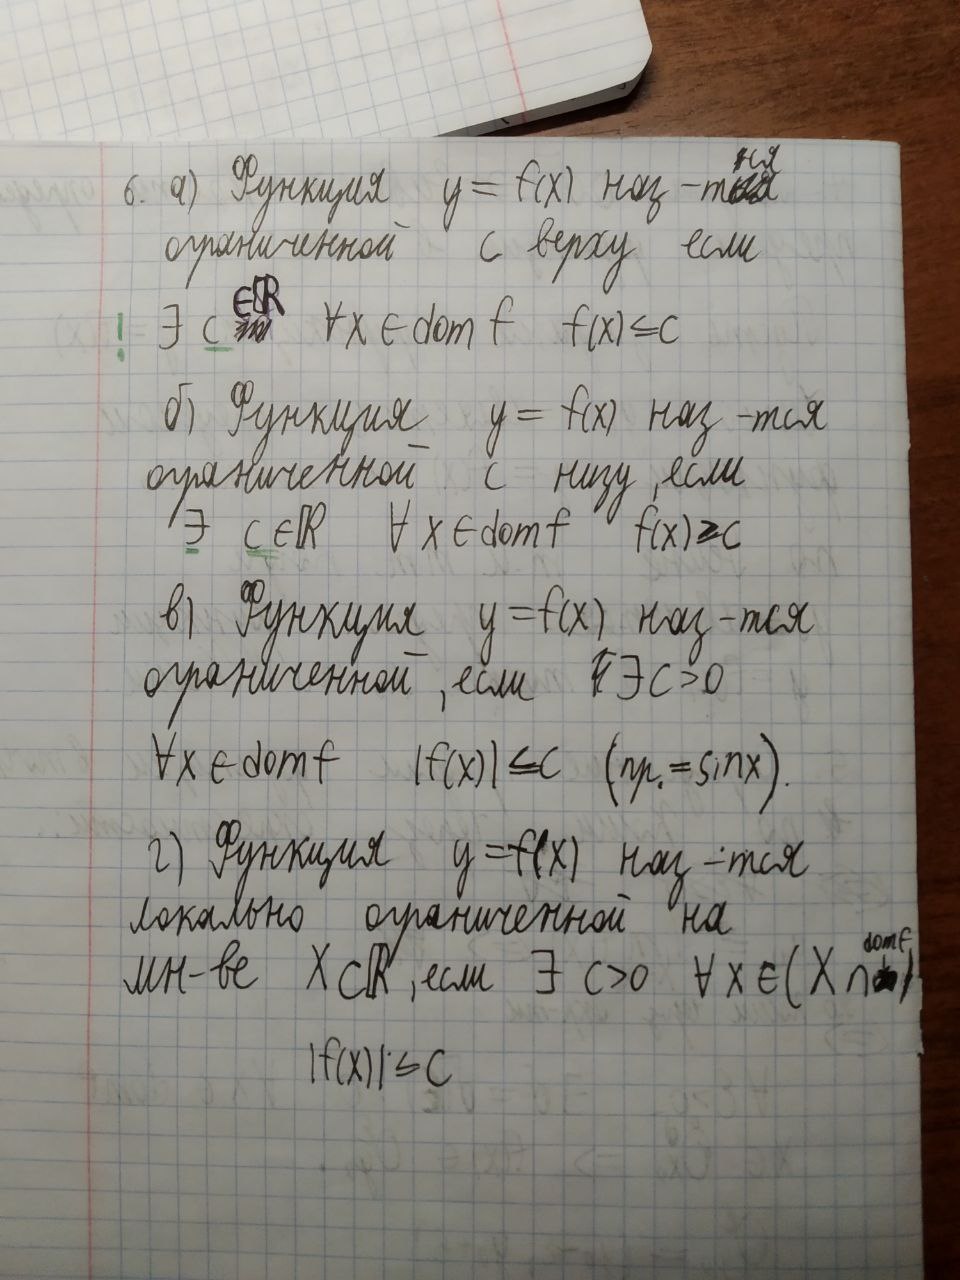 6. а) Функция y = f(x) наз-тся
ограниченной с верху если
! ∃ C ∈ℝ ∀x ∈ dom f f(x) ≤ C
б) Функция y = f(x) наз-тся
ограниченной с низу, если
∃ C ∈ ℝ ∀ x ∈ dom f f(x) ≥ C
в) Функция y = f(x) наз-тся
ограниченной, если ∃ C > 0
∀x ∈ dom f |f(x)| ≤ C (пр. = sinx).
г) Функция y = f(x) наз-тся
локально ограниченной на
мн-ве X ⊂ ℝ, если ∃ C > 0 ∀ x ∈ (X ∩ dom f)
|f(x)| ≤ C